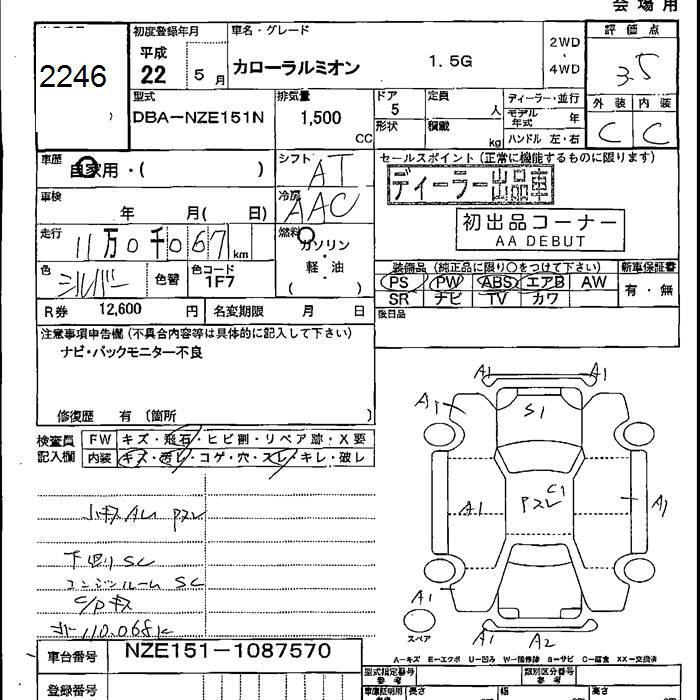 会場用
2246
初度登録年月
平成
22 5 月
車名・グレード
カローラルミオン 1.5G
2WD
・
4WD
評価点
3.5
外装 内装
C C
型式
DBA-NZE151N
排気量
1,500
CC
ドア
5
形状
定員
人
積載
kg
ディーラー・並行
モデル年式 年
ハンドル 左・右
車歴
自家用・( )
シフト
AT
車検
年 月( 日)
冷房
AAC
走行
11万0千067km
燃料
ガソリン
軽・油
( )
色
シルバー
色替
色コード
1F7
R券 12,600 円
名変期限 月 日
セールスポイント(正常に機能するものに限ります)
ディーラー出品車
初出品コーナー
AA DEBUT
装備品(純正品に限り○をつけて下さい)
新車保証書
PS PW ABS エアB AW
SR ナビ TV カワ
有・無
後日品
注意事項申告欄(不具合内容等は具体的に記入して下さい)
ナビ・バックモニター不良
修復歴 有〔箇所 〕
検査員
記入欄
FW キズ・飛石・ヒビ割・リペア跡・X要
内装 キズ・汚レ・コゲ・穴・スレ・キレ・破レ
下回り SC
エンジンルーム SC
C/P キズ
110.068K
A1 A1
A1
S1
C1
A1
A1
A1
A1 A2
スペア
A-キズ E-エクボ U-凹み W-補修跡 S-サビ C-腐食 XX-交換済
車台番号 NZE151-1087570
登録番号
型式指定番号
参考
類別区分番号
参考
長さ
幅
高さ